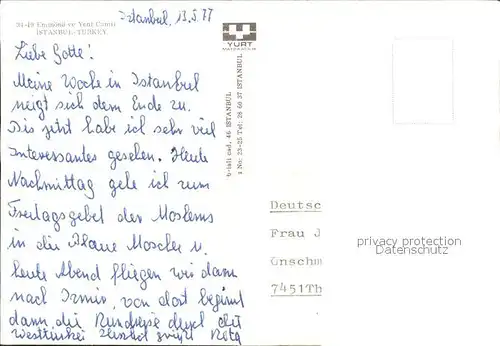 34-49 Eminönü ve Yeni Camii
ISTANBUL-TURKEY
Istanbul, 13.5.77
Liebe Gotte!
Meine Woche in Istanbul
neigt sich dem Ende zu.
Bis jetzt habe ich sehr viel
Interessantes gesehen. Heute
Nachmittag gehe ich zum
Freitagsgebet der Moslems
in die Blaue Moschee u.
heute Abend fliegen wir dann
nach Izmir, von dort beginnt
dann die Rundreise durch die
Westtürkei. Herzlichst grüsst Rita
YURT
b-ıali cad, 46 ISTANBUL
s No: 23-25 Tel: 26 60 37 ISTANBUL
Deutsc
Frau J
Onschm
7451Th
privacy protection
Datenschutz